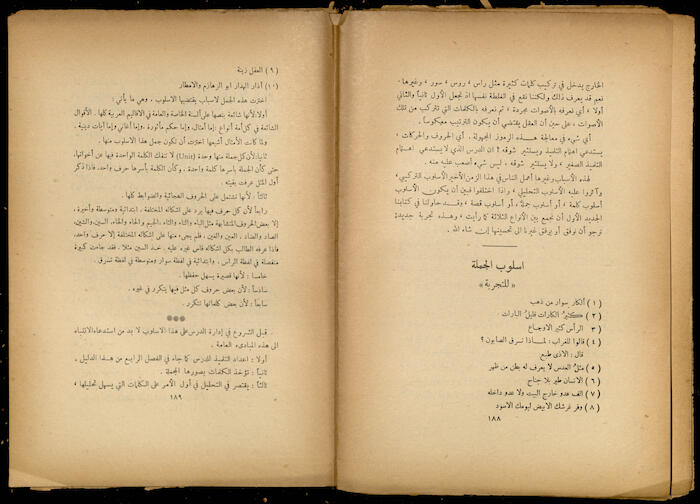 الخارج يدخل في تركيب كلمات كثيرة مثل راس ، روس ، سور ، وغيرها .
نعم قد يعرف ذلك ولكننا نقع في الغلطة نفسها اذ نجعل الأول ثانياً والثاني
أولاً ، أي نعرفه بالأصوات مجردة ، ثم نعرفه بالكلمات التي تتركب من تلك
الأصوات ، على حين أن العقل يقتضي أن يكون الترتيب معكوساً .
أي شيء في معالجة هذه الرموز المجهولة . أي الحروف والحركات ،
يستدعي اهتمام التلميذ ويستثير شوقه ? ان الدرس الذي لا يستدعي اهتمام
التلميذ الصغير ، ولا يستثير شوقه ، ليس شيء أصعب عليه منه .
لهذه الأسباب وغيرها أهمل الناس في هذا الزمن الأخير الأسلوب التركيبي ،
وآثروا عليه الأسلوب التحليلي ، واذا اختلفوا فبين أن يكون الأسلوب
أسلوب كلمة ، أو أسلوب جملة ، أو أسلوب قصة ، وقد حاولنا في كتابنا
الجديد الأول أن نجمع بين الأنواع الثلاثة كما رأيت ، وهذه تجربة جديدة
نرجو أن نوفق أو يوفق غيرنا الى تحسينها إن شاء الله .
اسلوب الجملة
« للتجربة »
( ١ ) أفكار سوار من ذهب
( ٢ ) كثيرُ الكارات قليلُ البارات .
( ٣ الرأس كثير الاوجاع
( ٤ ) قالوا للغراب : لماذا تسرق الصابون ؟
قال : الاذى طبع
( ٥ ) مثلُ العدس لا يعرف له بطن من ظهر
( ٦ ) الانسان طير بلا جناح
( ٧ ) الف عدو خارج البيت ولا عدو داخله
( ٨ ) وفر قرشك الابيض ليومك الاسود
١٨٨
( ٩ ) العقل زينة
( ١٠ ) آذار الهدار ابو الزلازل والامطار
اخترت هذه الجمل لاسباب يقتضيها الاسلوب . وهي ما يأتي :
أولاً : لأنها شائعة بنصها على ألسنة الخاصة والعامة في الاقاليم العربية كلها . الأقوال
الشائعة في كل أمة أنواع : إما أمثال ، وإما حكم مأثورة ، وإما أغاني وإما آيات دينية .
ولما كانت الأمثال أشيعها اخترت أن تكون جمل هذا الاسلوب منها .
ثانياً : لأن كل جملة منها وحدة (Unit) لا تنفك الكلمة الواحدة فيها عن أخواتها ،
حتى كأن الجملة بأسرها كلمة واحدة ، وكأن الكلمة بأسرها حرف واحد ، فاذا ذكر
أول المثل عرفت بقيته .
ثالثاً : لأنها تشتمل على الحروف الهجائية والضوابط كلها .
رابعاً لأن كل حرف فيها يرد على اشكاله المختلفة . ابتدائية ومتوسطة وأخيرة .
إلا بعض الحروف المتشابهة مثل الباء والتاء والثاء ، الجيم والحاء والخاء ، السين والشين ،
الصاد والضاد ، العين والغين ، فلم يجيء منها على اشكاله المختلفة إلا حرف واحد ،
فاذا عرفه الطالب بكل اشكاله قاس غيره عليه . خذ السين مثلا ، فقد جاءت كبيرة
منفصلة في لفظة الراس . وابتدائية في لفظة سوار ومتوسطة في لفظة تسرق .
خامسا : لأنها قصيرة يسهل حفظها .
سادساً : لأن بعض حروف كل مثل فيها يتكرر في غيره .
سابعاً : لأن بعض كلماتها تتكرر .
***
قبل الشروع في إدارة الدرس على هذا الاسلوب لا بد من استدعاء الانتباه
الى هذه المبادىء العامة .
أولا : اعداد التلميذ للدرس كما جاء في الفصل الرابع من هذا الدليل .
ثانياً : تؤخذ الكلمات بصورها المجملة .
ثالثاً : يقتصر في التحليل في أول الأمر على الكلمات التي يسهل تحليلها ،
١٨٩